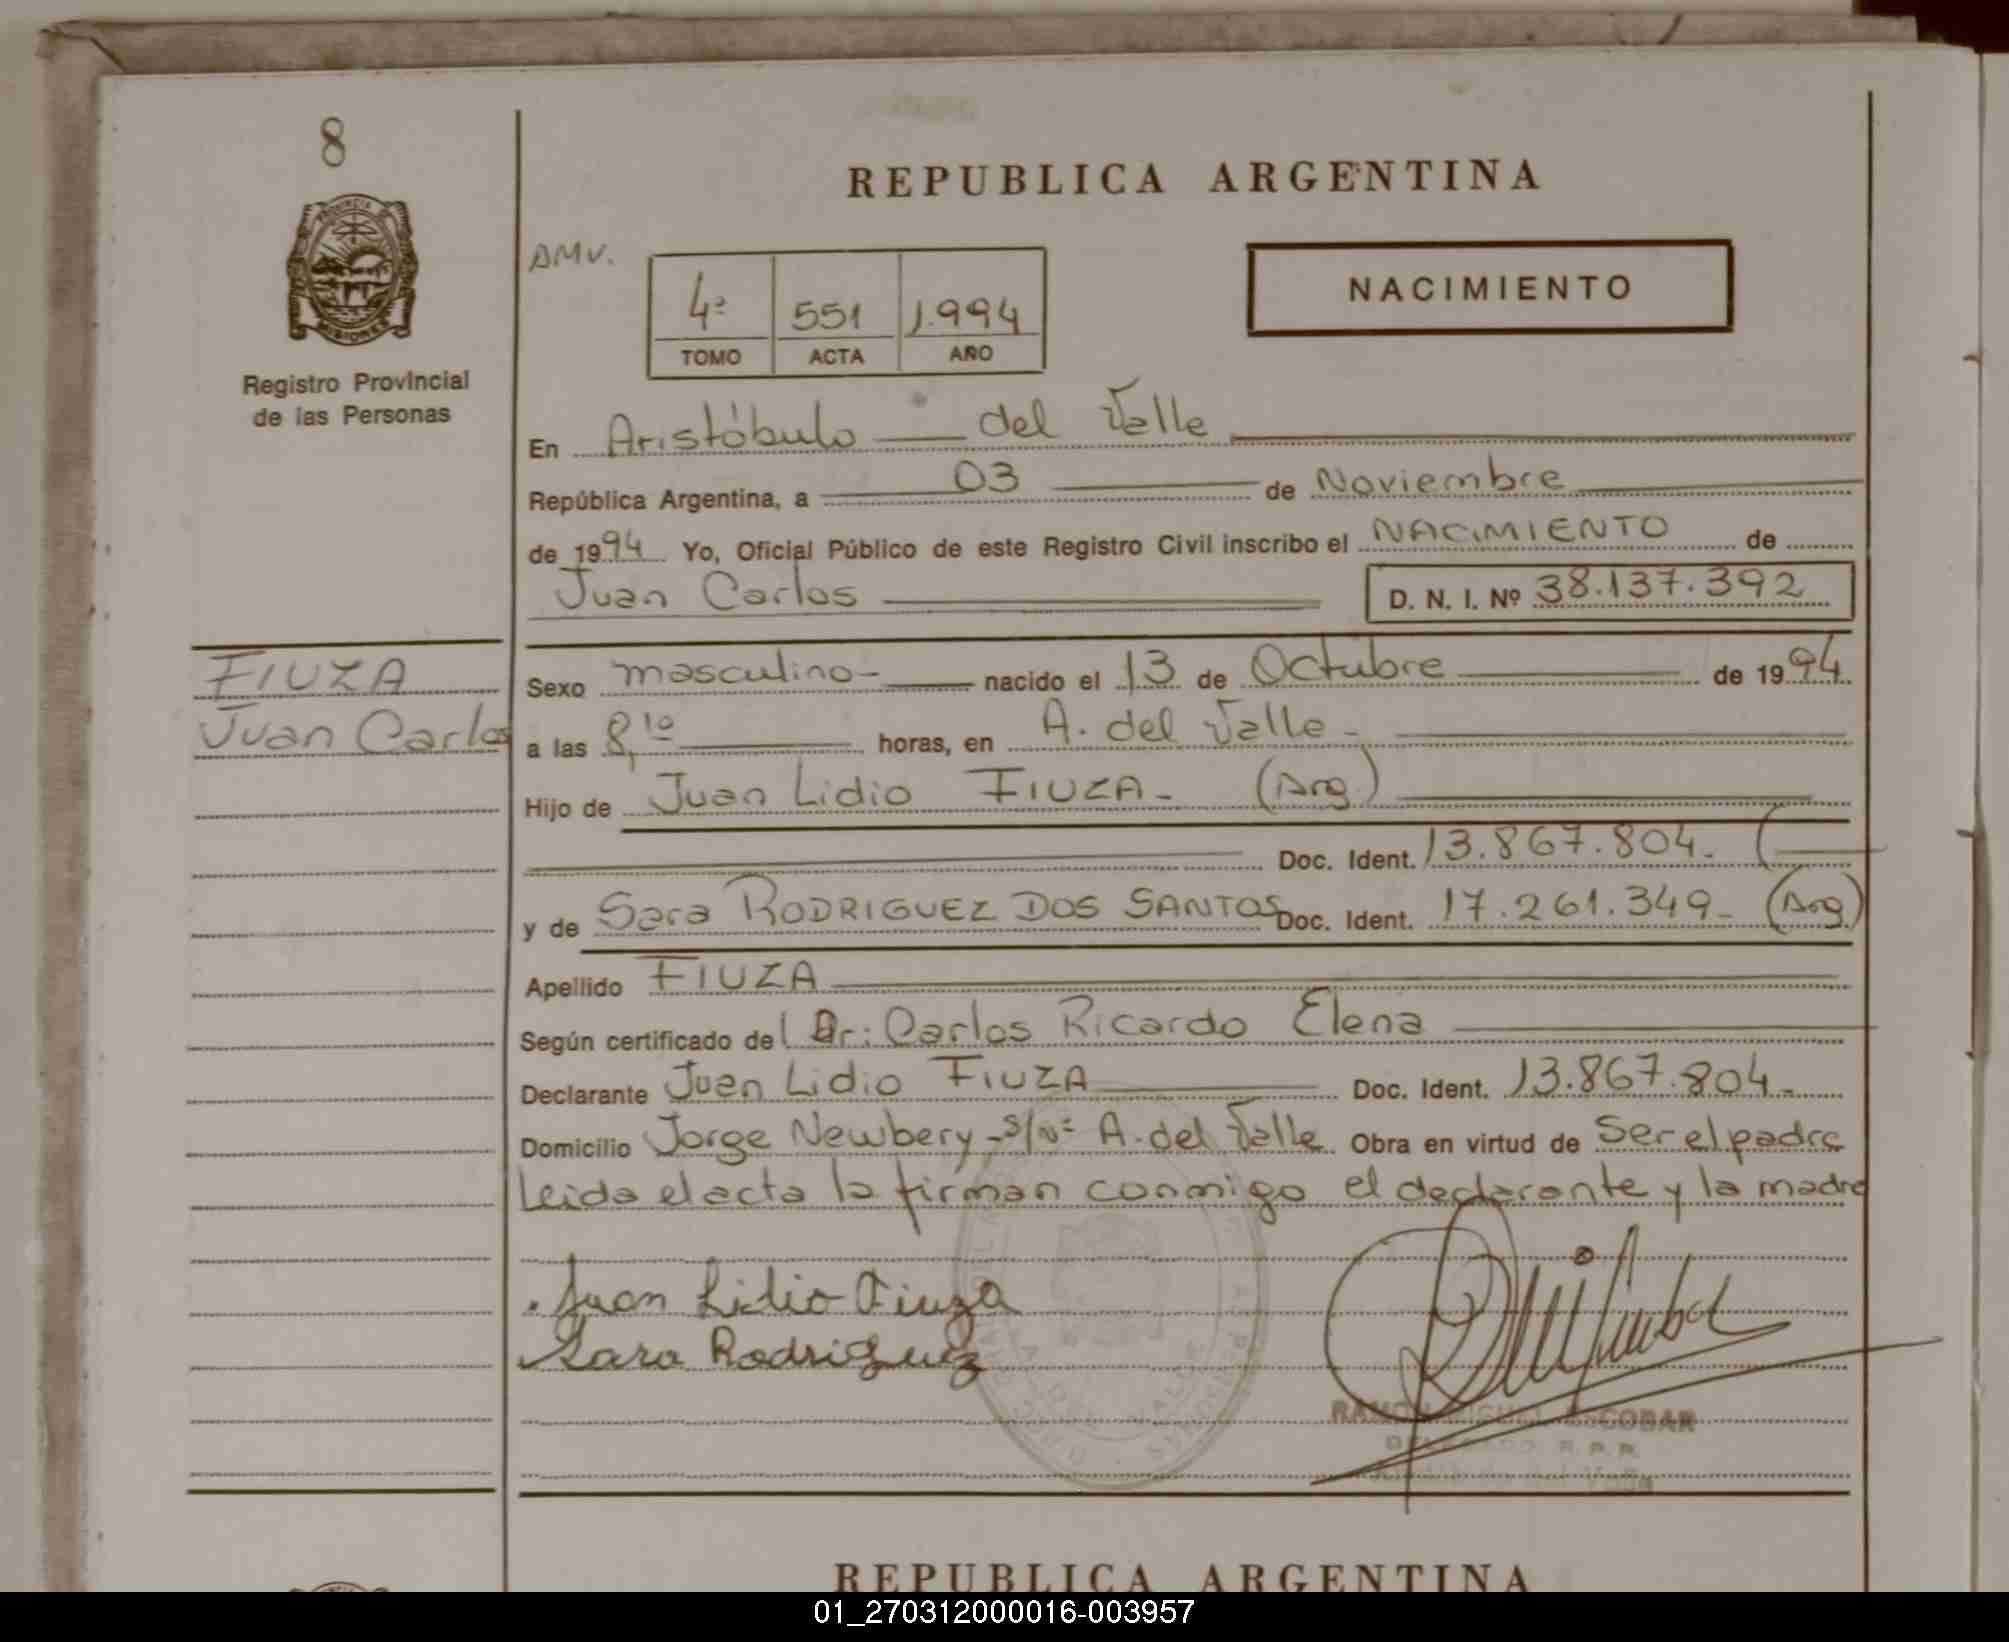 8
PROVINCIA DE
MISIONES
Registro Provincial
de las Personas
REPUBLICA ARGENTINA
AMV.
4º 551 1.994
TOMO ACTA AÑO
NACIMIENTO
En Aristóbulo del Valle
República Argentina, a 03 de Noviembre
de 1994 Yo, Oficial Público de este Registro Civil inscribo el NACIMIENTO de
Juan Carlos D. N. I. Nº 38.137.392
FIUZA
Juan Carlos
Sexo masculino nacido el 13 de Octubre de 1994
a las 8,10 horas, en A. del Valle
Hijo de Juan Lidio FIUZA (Arg.)
Doc. Ident. 13.867.804.
y de Sara RODRIGUEZ DOS SANTOS Doc. Ident. 17.261.349 (Arg)
Apellido FIUZA
Según certificado del Dr: Carlos Ricardo Elena
Declarante Juan Lidio FIUZA Doc. Ident. 13.867.804
Domicilio Jorge Newbery s/nº A. del Valle Obra en virtud de Ser el padre
Leida el acta la firman conmigo el declarante y la madre
Juan Lidio Fiuza
Sara Rodriguez
RAMON MIGUEL ESCOBAR
DELEGADO R.P.P.
REPUBLICA ARGENTINA
01_270312000016-003957